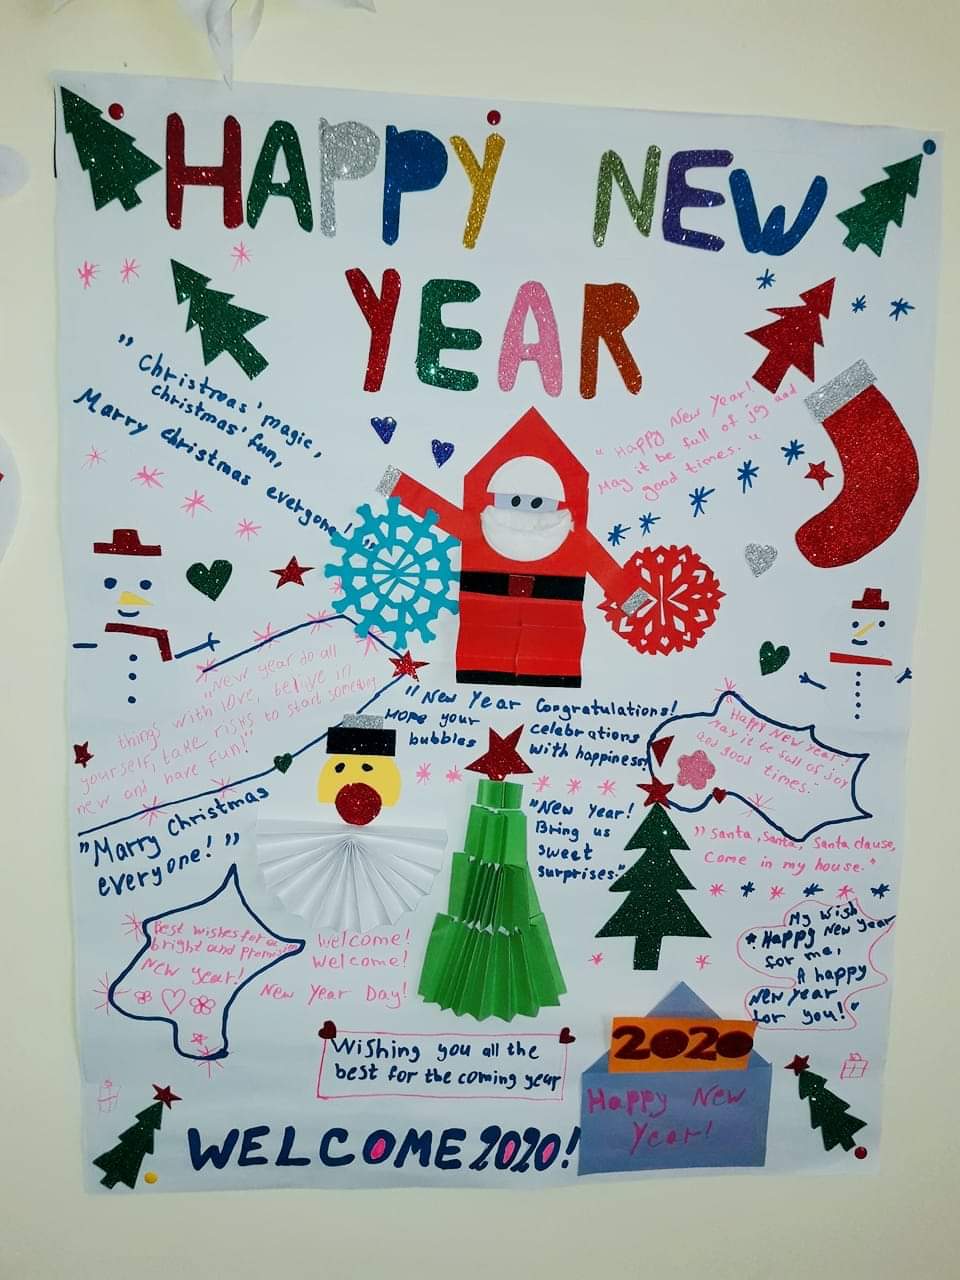 HAPPY NEW
YEAR
"Christmas' magic,
christmas' fun,
Marry christmas everyone!"
"Happy New Year!
May it be full of joy and
good times."
"New year do all
things with love, belive in
yourself, take risks to start something
new and have fun!"
"New Year Congratulations!
Hope your celebrations
bubbles with happiness!
Happy New Year!
May it be full of joy
and good times."
"New Year!
Bring us
sweet
surprises."
"Marry Christmas
everyone!"
"Santa, Santa, Santa clause,
Come in my house."
Best wishes for a
bright and promising
New year!
Welcome!
Welcome!
New Year Day!
My wish
"Happy New year
for me,
A happy
New year
for you!"
Wishing you all the
best for the coming year
2020
Happy New
Year!
WELCOME 2020!